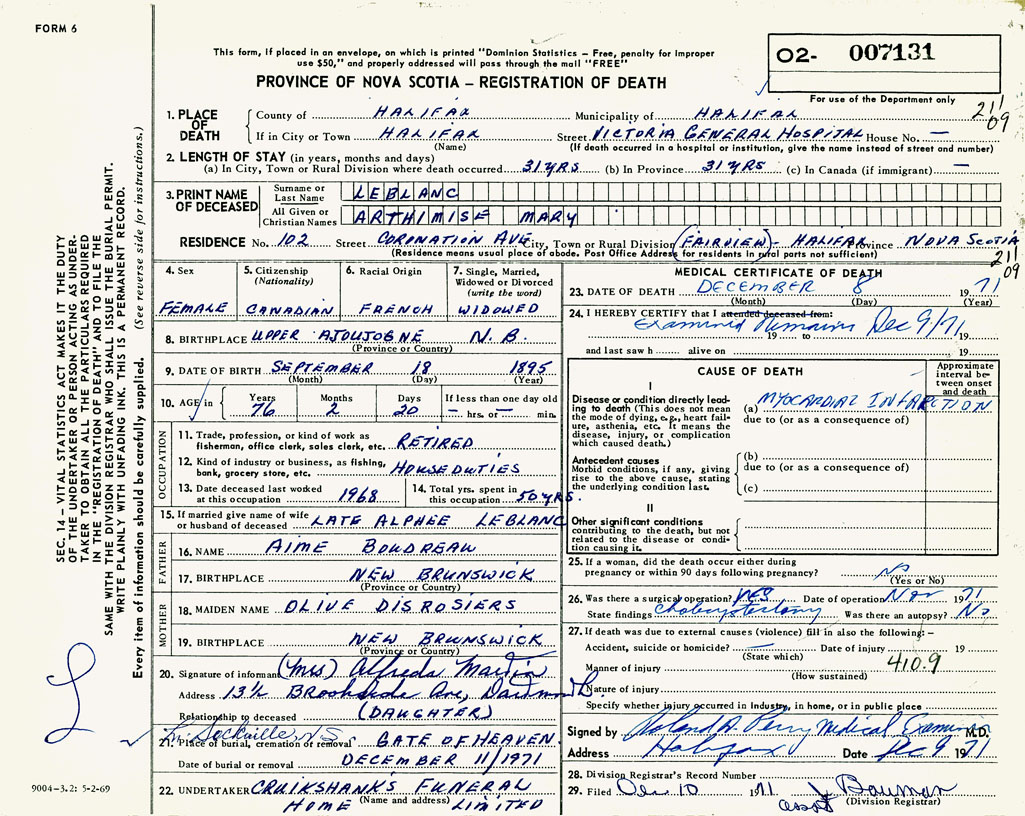 FORM 6
This form, if placed in an envelope, on which is printed "Dominion Statistics – Free, penalty for improper
use $50," and properly addressed will pass through the mail "FREE"
PROVINCE OF NOVA SCOTIA – REGISTRATION OF DEATH
02- 007131
For use of the Department only
211
09
1. PLACE OF DEATH
County of HALIFAX Municipality of HALIFAX
If in City or Town HALIFAX Street VICTORIA GENERAL HOSPITAL House No. —
(Name) (If death occurred in a hospital or institution, give the name instead of street and number)
2. LENGTH OF STAY (in years, months and days)
(a) In City, Town or Rural Division where death occurred 31 YRS (b) In Province 31 YRS (c) In Canada (if immigrant) —
3. PRINT NAME OF DECEASED
Surname or Last Name LEBLANC
All Given or Christian Names ARTHIMISE MARY
RESIDENCE No. 102 Street CORONATION AVE City, Town or Rural Division (FAIRVIEW) - HALIFAX Province NOVA SCOTIA
(Residence means usual place of abode. Post Office Address for residents in rural parts not sufficient)
211
09
4. Sex FEMALE
5. Citizenship (Nationality) CANADIAN
6. Racial Origin FRENCH
7. Single, Married, Widowed or Divorced (write the word) WIDOWED
8. BIRTHPLACE UPPER N.B.
(Province or Country)
9. DATE OF BIRTH SEPTEMBER 18 1895
(Month) (Day) (Year)
10. AGE in Years 76 Months 2 Days 20 If less than one day old — hrs. or — min.
OCCUPATION
11. Trade, profession, or kind of work as fisherman, office clerk, sales clerk, etc. RETIRED
12. Kind of industry or business, as fishing, bank, grocery store, etc. HOUSE DUTIES
13. Date deceased last worked at this occupation 1968
14. Total yrs. spent in this occupation 50 YRS.
15. If married give name of wife or husband of deceased LATE ALPHEE LEBLANC
FATHER
16. NAME AIME BOUDREAU
17. BIRTHPLACE NEW BRUNSWICK
(Province or Country)
MOTHER
18. MAIDEN NAME OLIVE DISROSIERS
19. BIRTHPLACE NEW BRUNSWICK
(Province or Country)
20. Signature of informant (Mrs) Alfreda Martin
Address 13½ Brookside Ave, Dartmouth.
Relationship to deceased (DAUGHTER)
Lr. Sackville N.S.
21. Place of burial, cremation or removal GATE OF HEAVEN
Date of burial or removal DECEMBER 11/1971
22. UNDERTAKER CRUIKSHANK'S FUNERAL
HOME (Name and address) LIMITED
MEDICAL CERTIFICATE OF DEATH
23. DATE OF DEATH DECEMBER 8 1971
(Month) (Day) (Year)
24. I HEREBY CERTIFY that I attended deceased from:
Examined Remains Dec 9/71
19 to 19
and last saw h alive on 19
CAUSE OF DEATH
Approximate interval between onset and death
I
Disease or condition directly leading to death (This does not mean the mode of dying, e.g., heart failure, asthenia, etc. It means the disease, injury, or complication which caused death.)
(a) MYOCARDIAL INFARCTION
due to (or as a consequence of)
Antecedent causes
Morbid conditions, if any, giving rise to the above cause, stating the underlying condition last.
(b)
due to (or as a consequence of)
(c)
II
Other significant conditions contributing to the death, but not related to the disease or condition causing it.
25. If a woman, did the death occur either during pregnancy or within 90 days following pregnancy? No
(Yes or No)
26. Was there a surgical operation? YES Date of operation Nov 1971
State findings Was there an autopsy? No
27. If death was due to external causes (violence) fill in also the following:–
Accident, suicide or homicide? Date of injury 19
(State which)
410.9
Manner of injury
(How sustained)
Nature of injury
Specify whether injury occurred in industry, in home, or in public place
Signed by Roland A. Perry Medical Examiner M.D.
Address Halifax Date Dec 9 1971
28. Division Registrar's Record Number
29. Filed Dec 10 1971 J Bauman
asst (Division Registrar)
SEC. 14 – VITAL STATISTICS ACT MAKES IT THE DUTY
OF THE UNDERTAKER OR PERSON ACTING AS UNDER-
TAKER TO OBTAIN ALL THE PARTICULARS REQUIRED
IN THE "REGISTRATION OF DEATH" AND TO FILE THE
SAME WITH THE DIVISION REGISTRAR WHO SHALL ISSUE THE BURIAL PERMIT.
WRITE PLAINLY WITH UNFADING INK. THIS IS A PERMANENT RECORD.
Every item of information should be carefully supplied. (See reverse side for instructions.)
9004-3.2: 5-2-69